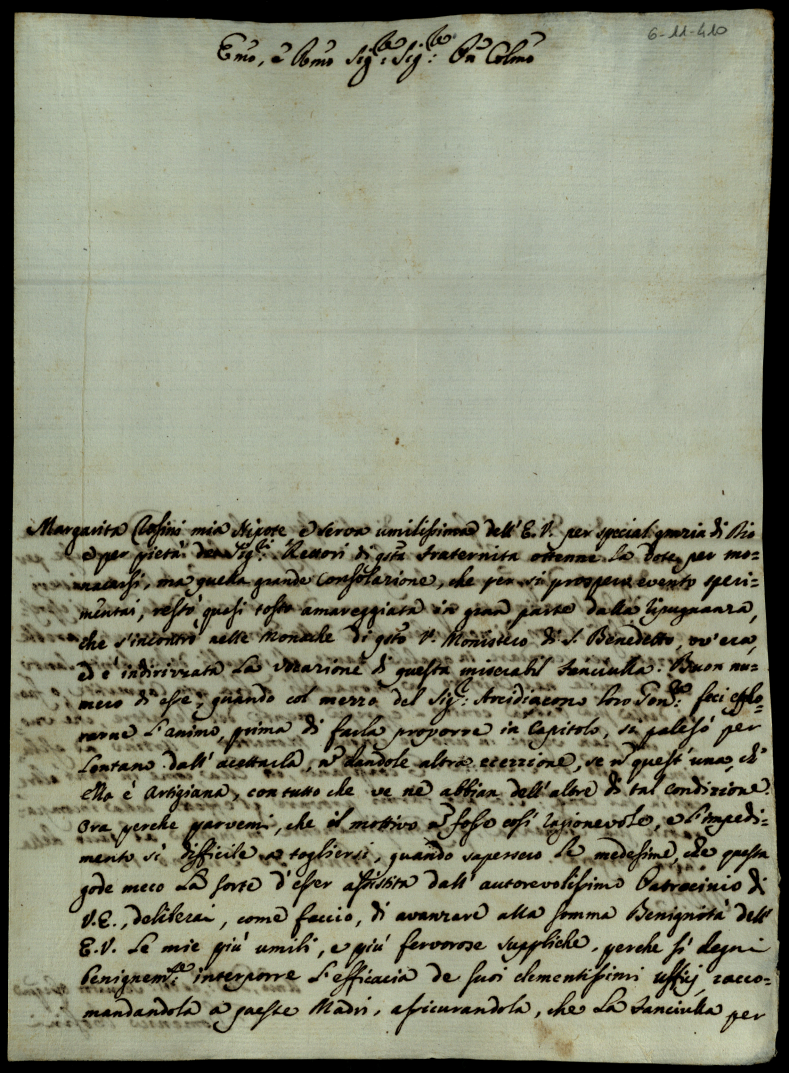 6-11-410
Emo, e Rmo Sig.re Sig.re Pn Colmo
Margarita Rossini mia Nipote e serva umilissima dell'E.V. per special grazia di Dio
e per pietà de Sig.ri Rettori di qsta Fraternita ottenne la Dote per mo=
nacarsi, ma quella grande Consolazione, che per sì prospero evento speri=
mentai, restò quasi tosto amareggiata in gran parte dalla ripugnanza,
che s'incontrò nelle Monache di qsto V. Monistero di S. Benedetto, ov'era,
ed è indirizzata la vocazione di questa miserabil fanciulla. Buon nu=
mero di esse, quando col mezzo del Sig.r Arcidiacono loro feci esplo=
rarne l'animo, prima di farla proporre in Capitolo, si palesò per
lontano dall'accettarla, nõ dandole altra eccezzione, se nõ quest'una, ch'
ella è Artigiana, con tutto che ve ne abbian dell'altre di tal condizione.
Ora perche parvemi, che il mottivo nõ fosse così ragionevole, e l'impedi=
mento sì difficile a togliersi, quando sapessero le medesime, che questa
gode meco la sorte d'esser assistita dall'autorevolissimo Patrocinio di
V.E., deliberai, come faccio, di avanzare alla somma Benignità dell'
E.V. le mie più umili, e più fervorose suppliche, perche si degni
benignem.te interporre l'efficacia de suoi clementissimi uffizj, racco=
mandandola a queste Madri, assicurandola, che la fanciulla per